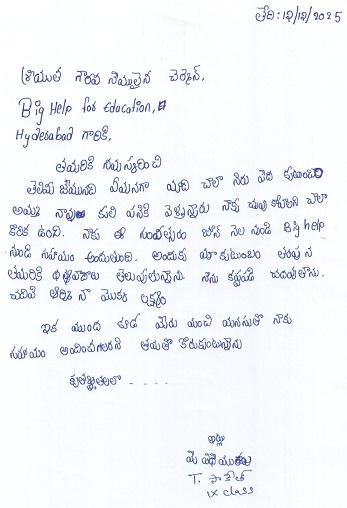 తేది: 12/12/2025
శ్రీయుత గౌరవ నీయులైన చైర్మెన్,
Big Help for Education,
Hyderabad గారికి,
తమరికి నమస్కరించి
తెలియ చేయునది ఏమనగా మాది చాలా నిరు పేద కుటుంబం
అమ్మ నాన్న కూలి పనికి వెళ్తున్నారు నాకు చదువు కోవాలని చాలా
కోరిక ఉంది. నాకు ఈ సంవత్సరం జూన్ నెల నుండి Big help
నుండి సహాయం అందుతుంది. అందుకు మా కుటుంబం తరుపు న
తమరికి ధన్యవాదాలు తెలుపుతున్నాను. నేను కష్టపడి చదువుతాను.
చదివే నా యొక్క లక్ష్యం
ఇక ముందు కూడ మీరు మంచి మనసుతో నాకు
సహాయం అందించగలరని ఆశతో కోరుకుంటున్నాను
కృతజ్ఞతలతో - - - -
ఇట్లు
మీ విధేయురాలు
T.
IX class